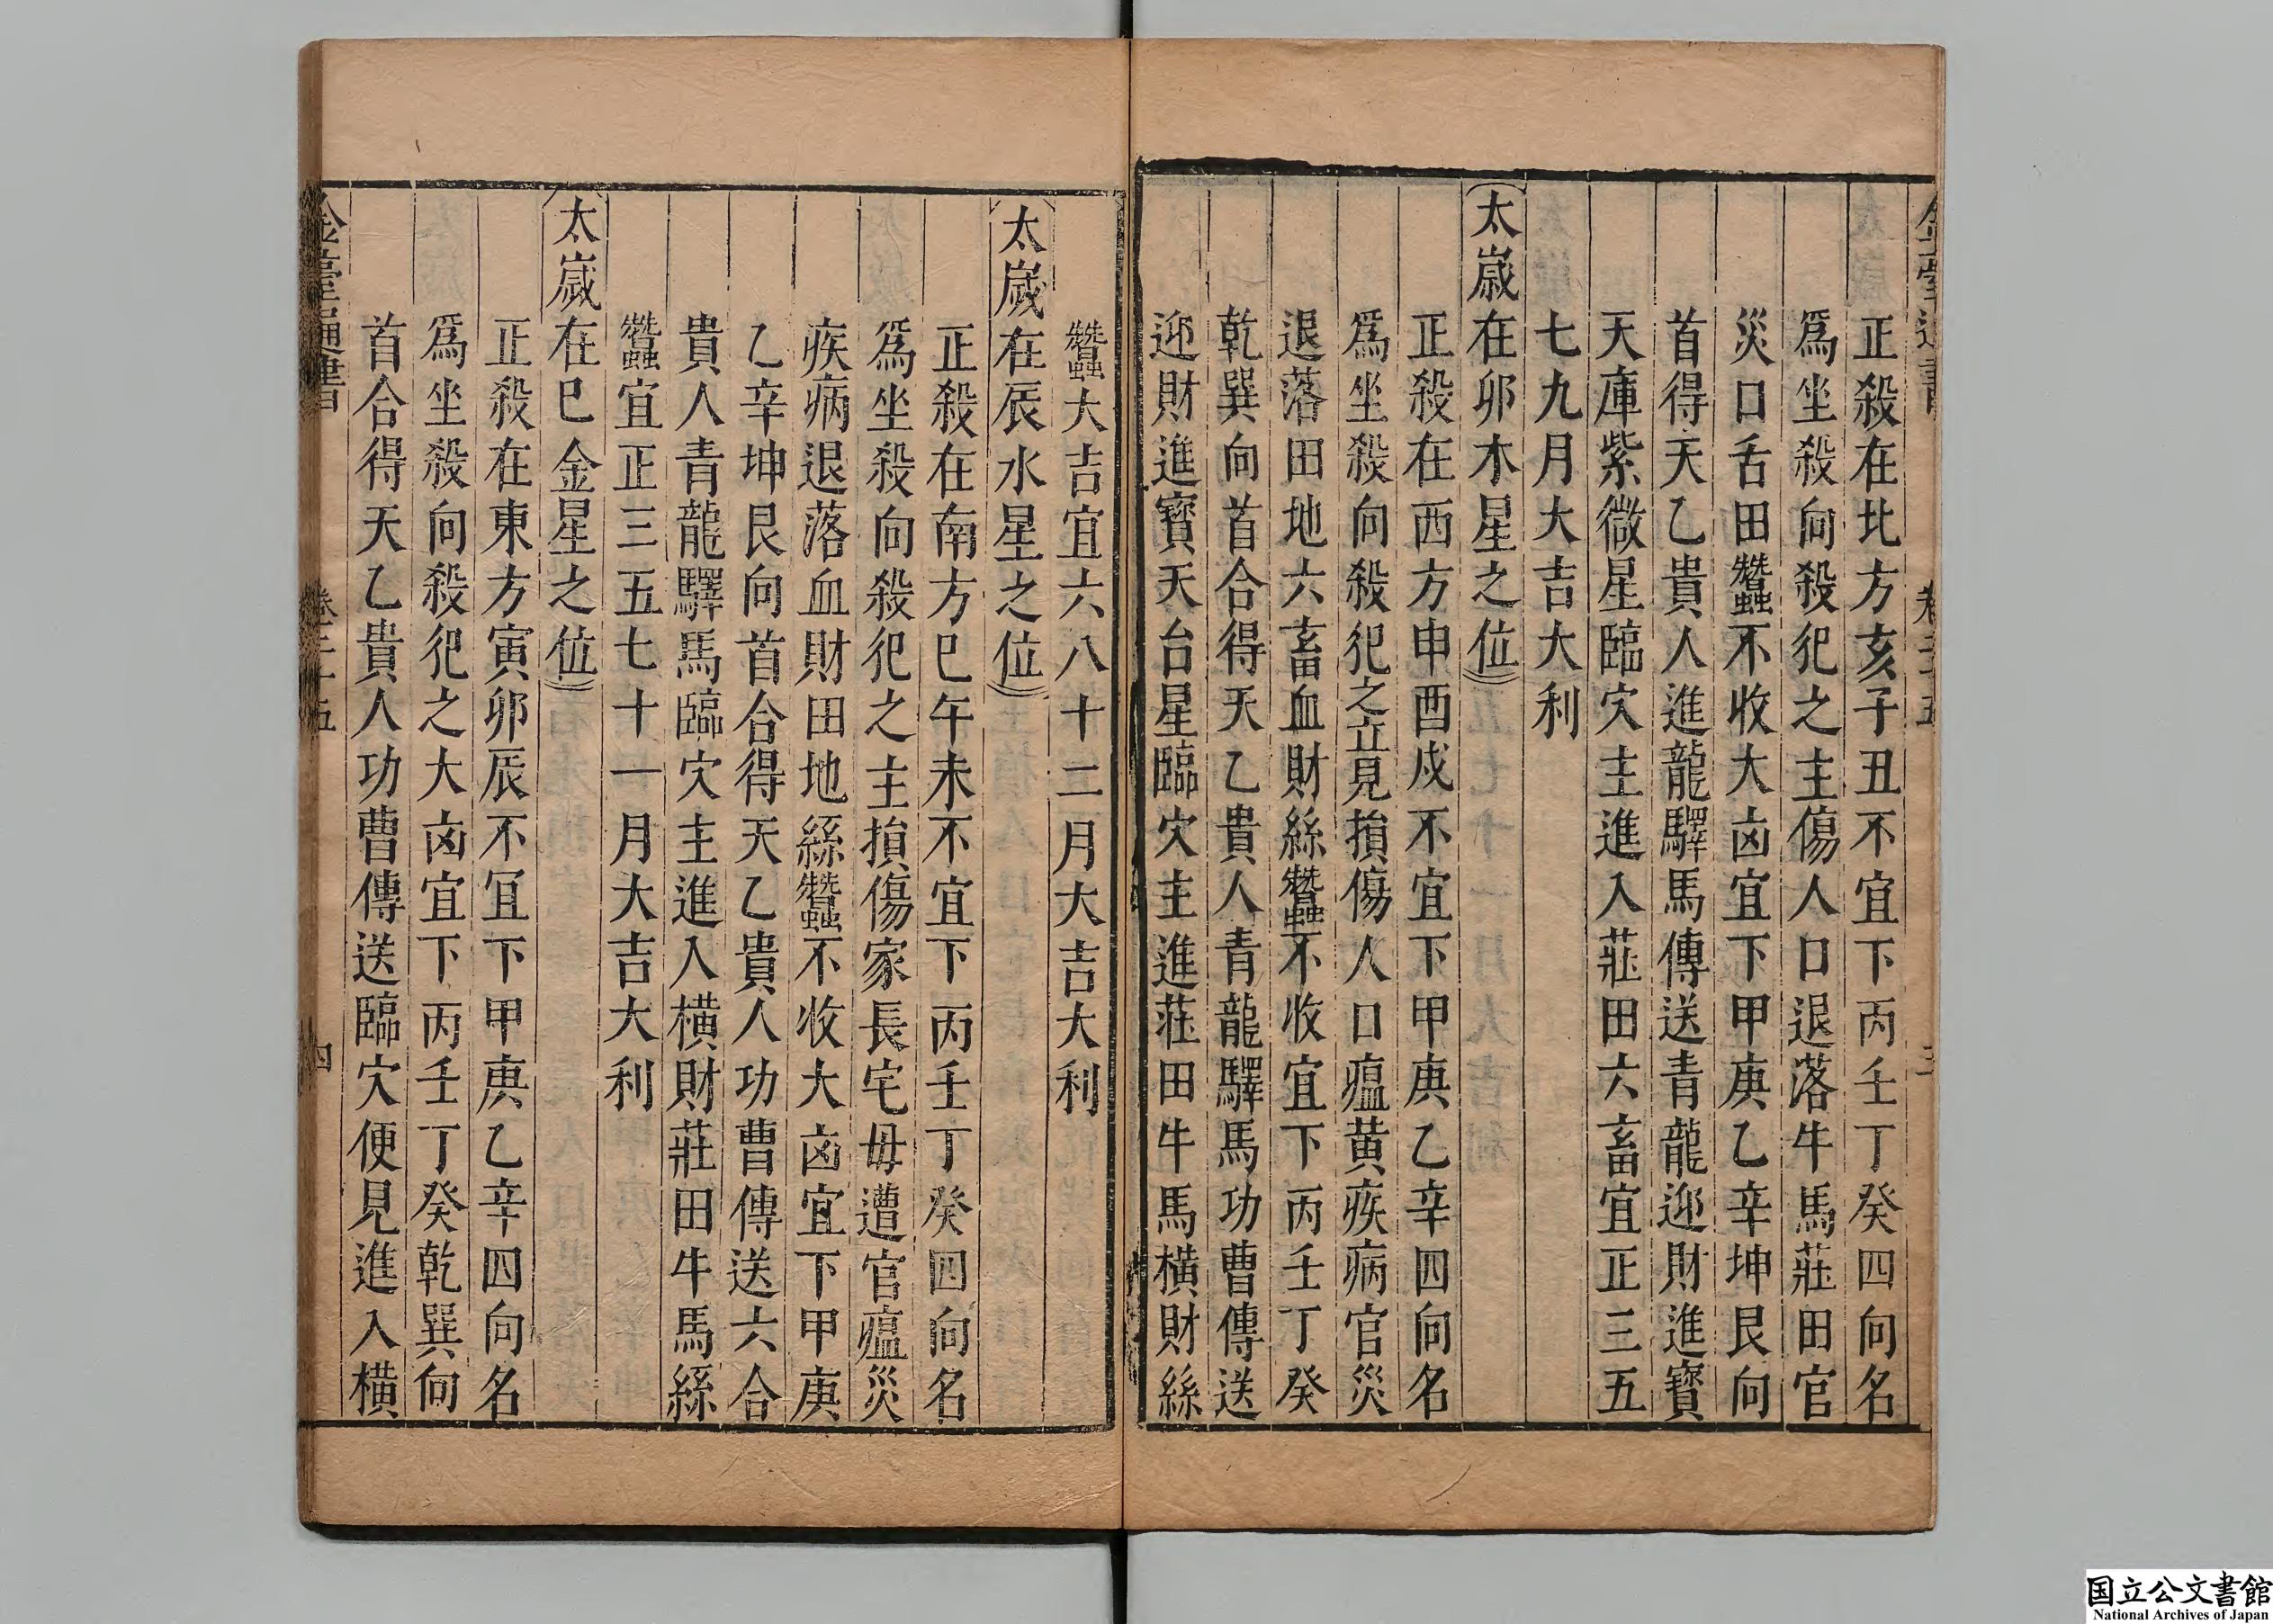 正殺在北方亥子丑不宜下丙壬丁癸四向名
爲坐殺向殺犯之主傷人口退落牛馬莊田官
災口舌田蠶不收大凶宜下甲庚乙辛坤艮向
首得天乙貴人進龍驛馬傳送青龍迎財進寶
天庫紫微星臨穴主進入莊田六畜宜正三五
七九月大吉大利
太歲在卯木星之位
正殺在西方申酉戌不宜下甲庚乙辛四向名
爲坐殺向殺犯之立見損傷人口瘟黃疾病官災
退落田地六畜血財絲蠶不收宜下丙壬丁癸
乾巽向首合得天乙貴人青龍驛馬功曹傳送
迎財進寶天台星臨穴主進莊田牛馬橫財絲
蠶大吉宜六八十二月大吉大利
太歲在辰水星之位
正殺在南方巳午未不宜下丙壬丁癸四向名
爲坐殺向殺犯之主損傷家長宅母遭官瘟災
疾病退落血財田地絲蠶不收大凶宜下甲庚
乙辛坤艮向首合得天乙貴人功曹傳送六合
貴人青龍驛馬臨穴主進入橫財莊田牛馬絲
蠶宜正三五七十一月大吉大利
太歲在巳金星之位
正殺在東方寅卯辰不宜下甲庚乙辛四向名
爲坐殺向殺犯之大凶宜下丙壬丁癸乾巽向
首合得天乙貴人功曹傳送臨穴便見進入橫
金臺通書 卷三十五 四
国立公文書館
National Archives of Japan